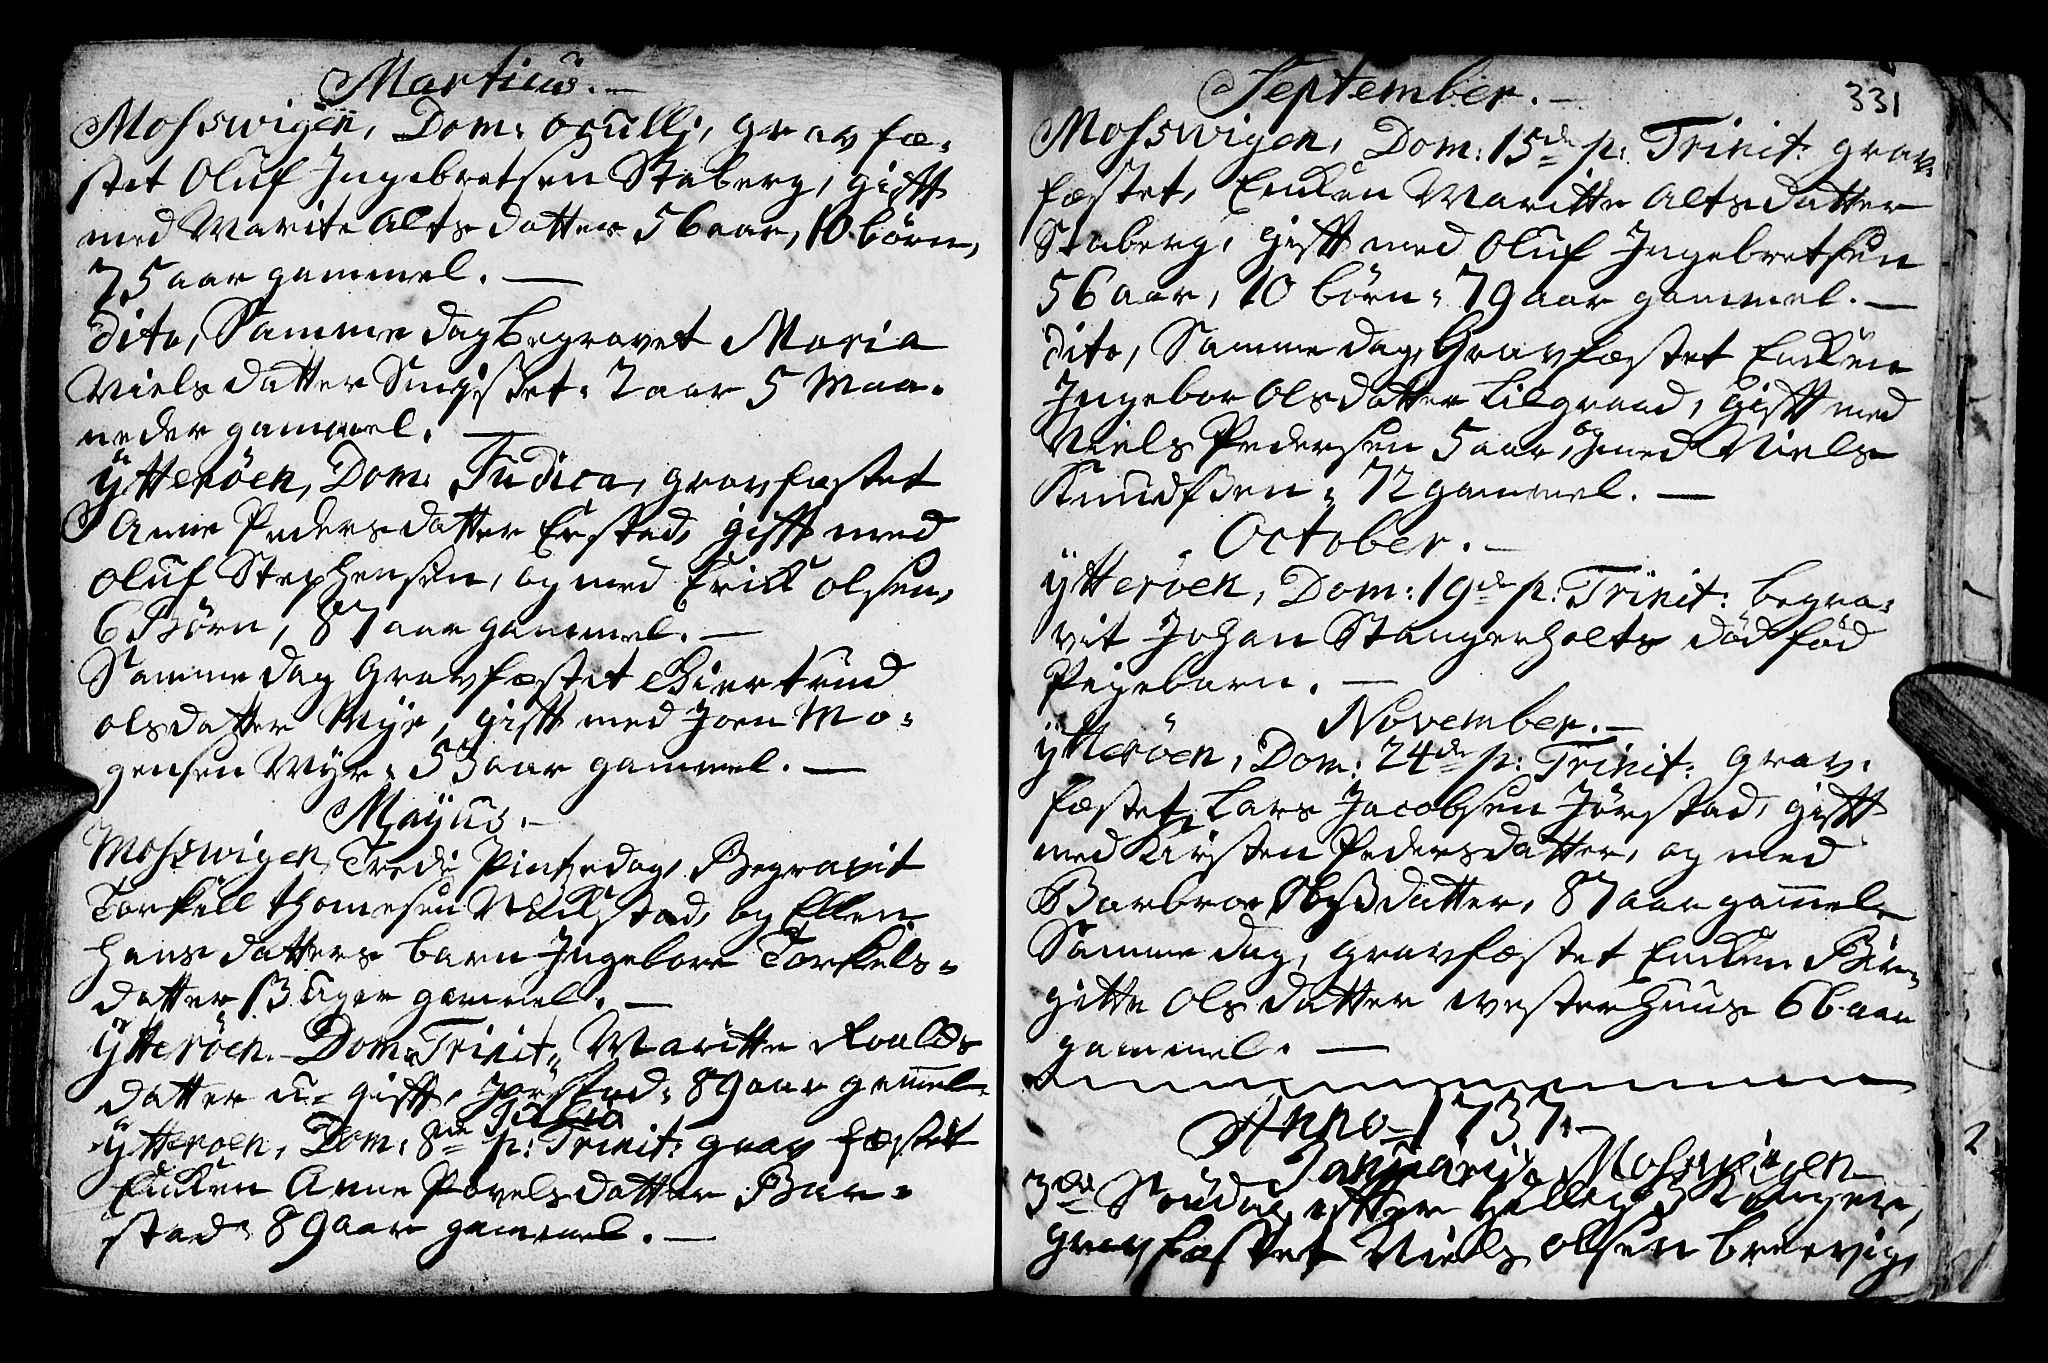 Martius.
Mosswigen, Dom: oculi, grav fæ-
stet Oluf Ingebretsen Staberg, gift
med Marite Alts datter 56 aar, 10 börn,
75 aar gammel.
dito, Samme dag begravet Maria
Niels datter 2 aar 5 Maa-
neder gammel.
Ytteröen, Dom: Judica, gravfæstet
Anne Peders datter Ersted, gift med
Oluf Stephensen, og med Erick olsen,
6 Börn, 87 aar gammel.
Samme dag gravfæstet Giertrud
olsdatter Myr, gift med Joen Mo-
gensen Myr, 53 aar gammel.
Mayus.
Mosswigen, Tredie Pintzedag, Begravit
Torkill thomesen stad, og Ellen
Hans datters barn Ingebor Torkels-
datter 13 uger gammel.
Ytteröen. Dom: Trinit: Maritte Roalds
datter u-gift, Jörstad: 89 aar gammel.
Julio
Ytteröen, Dom: 8de p: Trinit: grav fæstet
Encken Anne Povels datter Bar-
stad: 89 aar gammel.
331
September.
Mosswigen, Dom: 15de p: Trinit: grav-
fæstet, Encken Maritte Alts datter
Staberg, gift med Oluf Ingebretsen
56 aar, 10 börn, 79 aar gammel.
dito, Samme dag, Gravfæstet Encken
Ingebor Olsdatter Lilgraad, gift med
Niels Pedersen 5 aar, og med Niels
Knudssen, 72 gammel.
October.
Ytteröen, Dom: 19de p: Trinit: begra-
vit Johan Stangerholts död föd
Pigebarn.
November.
Ytteröen, Dom: 24de p: Trinit: grav-
fæstet Lars Jacobsen Jörstad, gift
med Kirsten Pedersdatter, og med
Barbroe datter, 87 aar gammel.
Samme dag, gravfæstet Encken Bir-
gitte Olsdatter westerhuus 66 aar
gammel.
Anno 1737.
Januarii, Mosswigen
3de Söndag efter Hellig 3 Konger,
gravfæstet Niels olsen breevig,
2